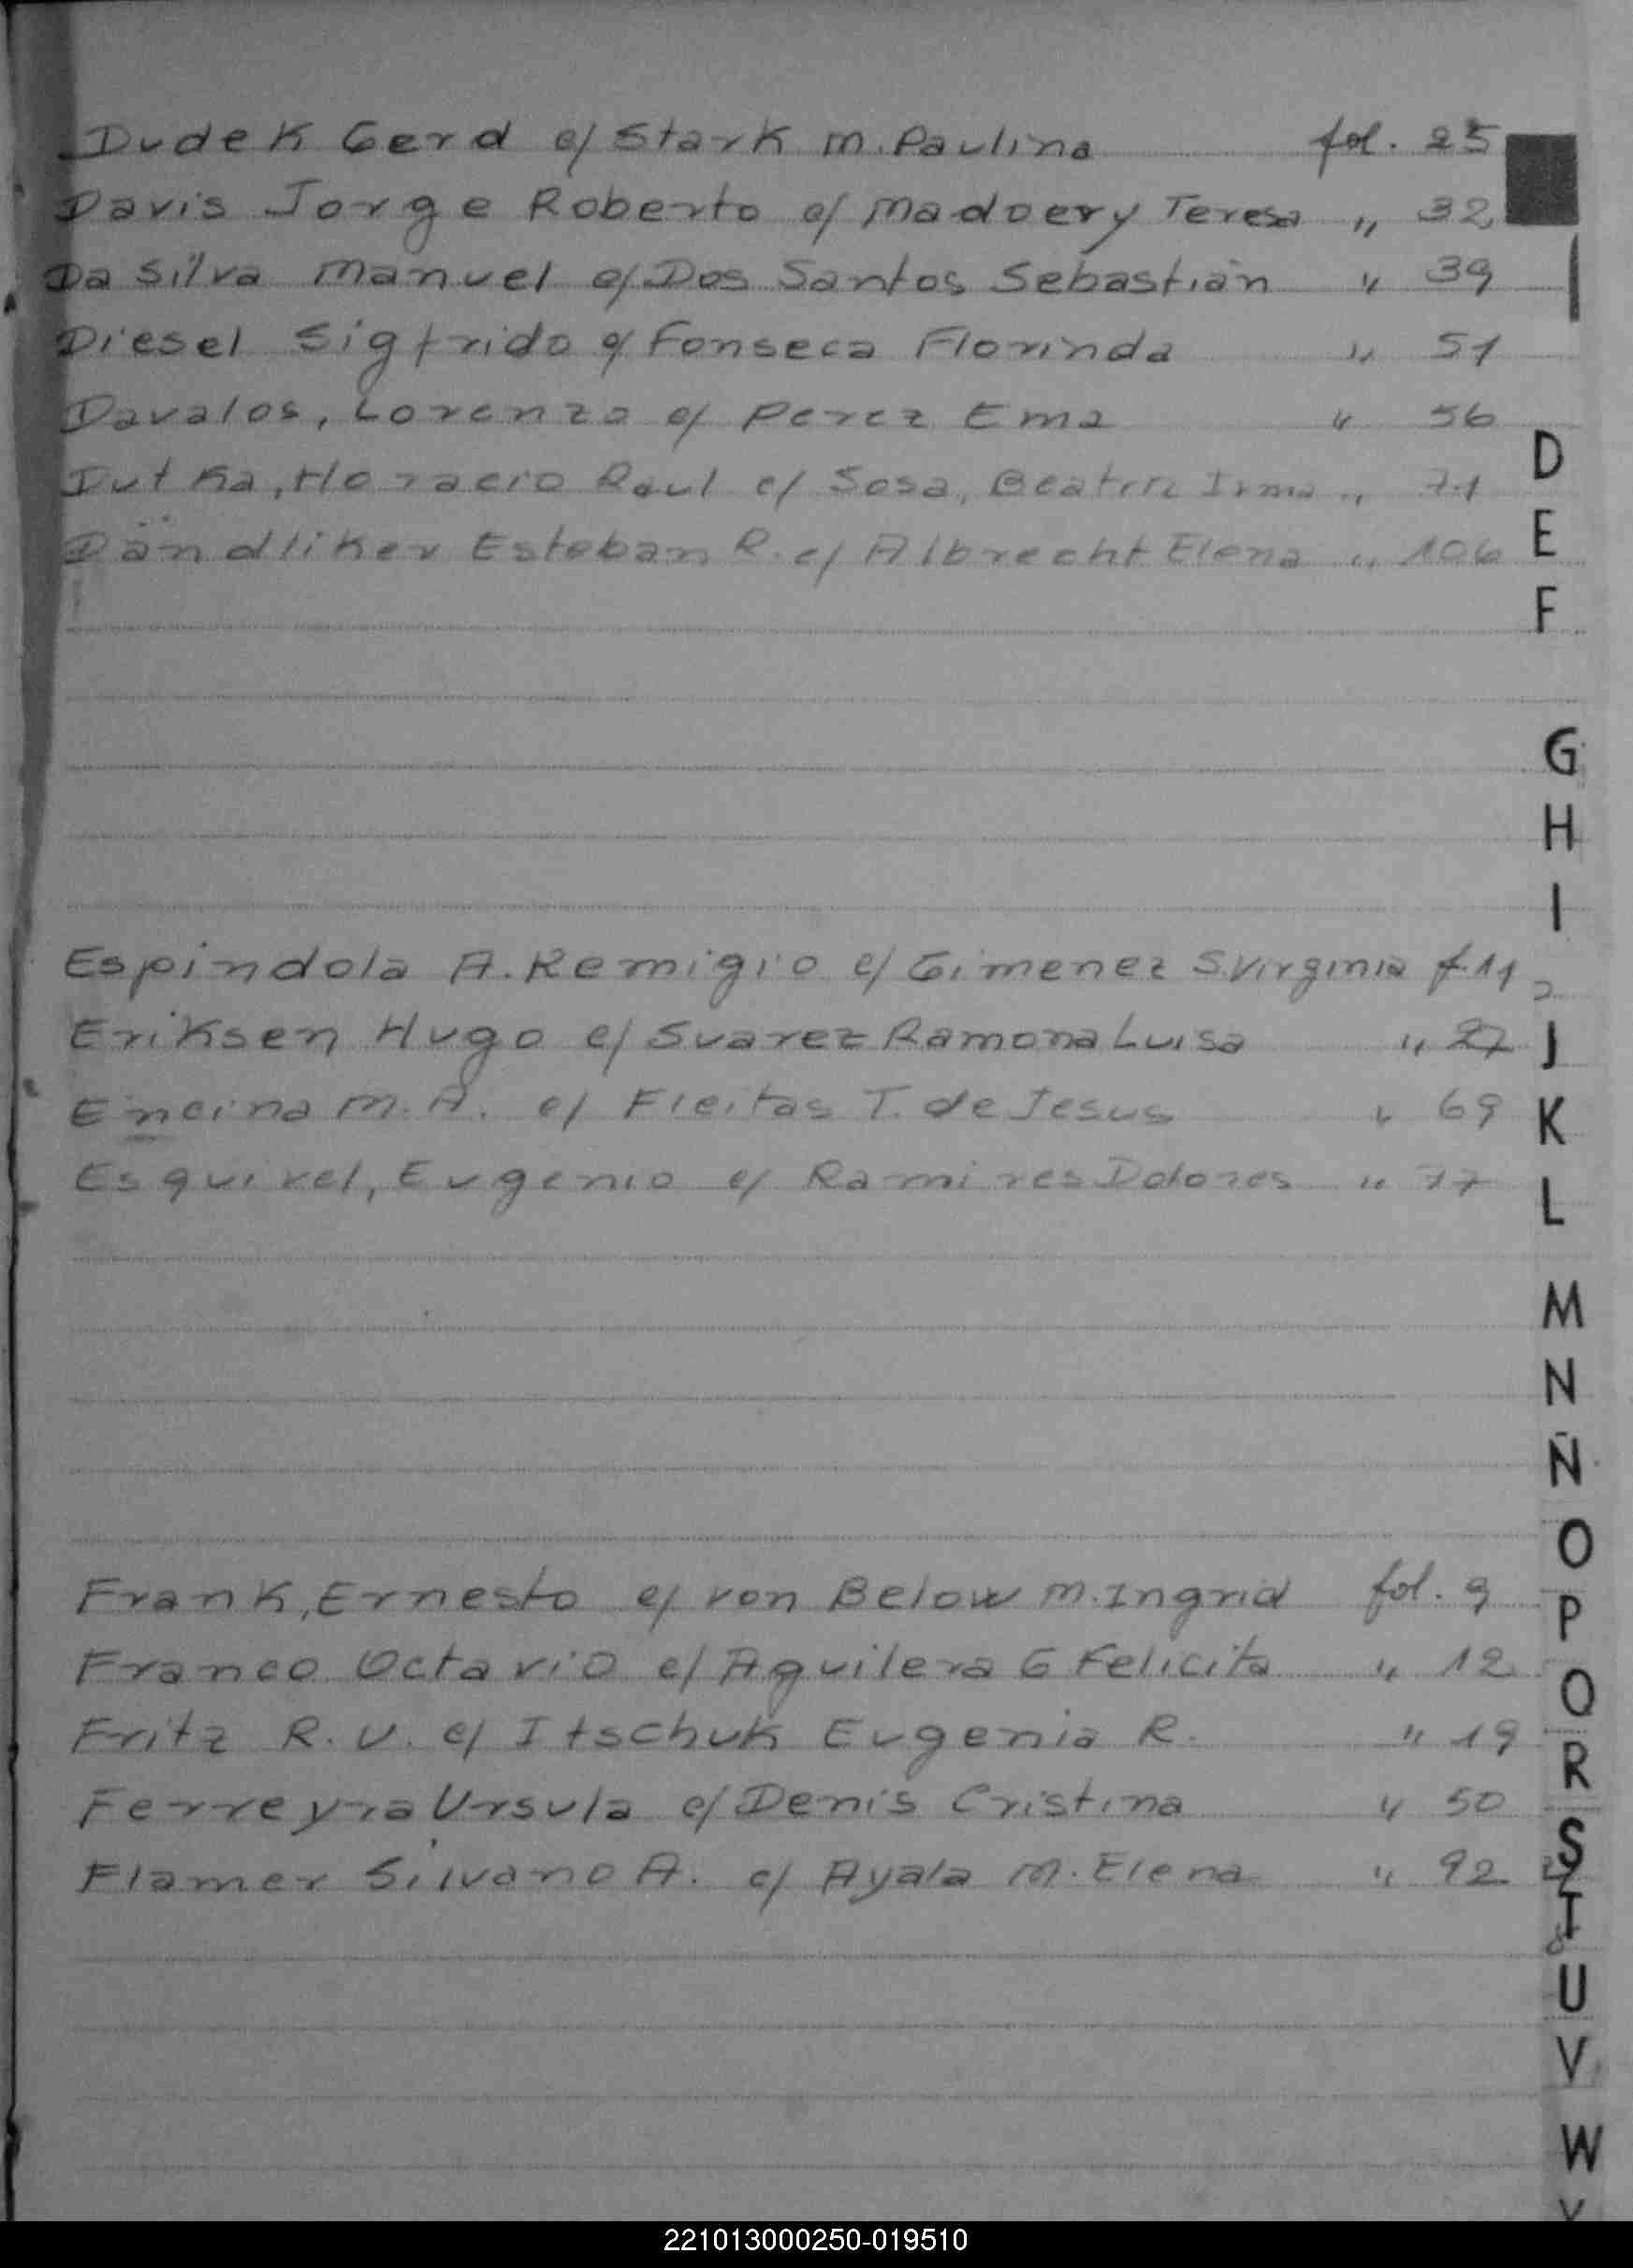 Dudek Gerd c/ Stark M. Paulina fol. 25
Davis Jorge Roberto c/ Madoery Teresa " 32
Da Silva Manuel c/ Dos Santos Sebastian " 39
Diesel Sigfrido c/ Fonseca Florinda " 51
Davalos, Lorenzo c/ Perez Ema " 56
Dutka, Horacio Raul c/ Sosa, Beatriz Irma " 71
Dändliker Esteban R. c/ Albrecht Elena " 106
Espindola A. Remigio c/ Gimenez S. Virginia f. 11
Eriksen Hugo c/ Suarez Ramona Luisa " 27
Encina M. A. c/ Fleitas T. de Jesus " 69
Esquivel, Eugenio c/ Ramires Dolores " 77
Frank, Ernesto c/ von Below M. Ingrid fol. 9
Franco Octavio c/ Aguilera G Felicita " 12
Fritz R. U. c/ Itschuk Eugenia R. " 19
Ferreyra Ursula c/ Denis Cristina " 50
Flamer Silvano A. c/ Ayala M. Elena " 92
D
E
F
G
H
I
J
K
L
M
N
Ñ
O
P
Q
R
S
T
U
V
W
221013000250-019510